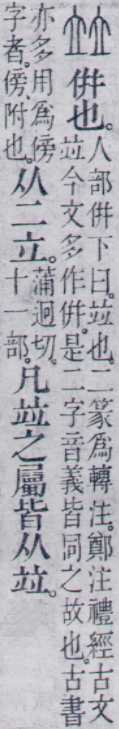 竝 併也。
人部併下曰。竝也。二篆爲轉注。鄭注禮經古文
竝今文多作併。是二字音義皆同之故也。古書
亦多用爲傍
字者。傍附也。
从二立。
蒲迥切。
十一部。
凡竝之屬皆从竝。